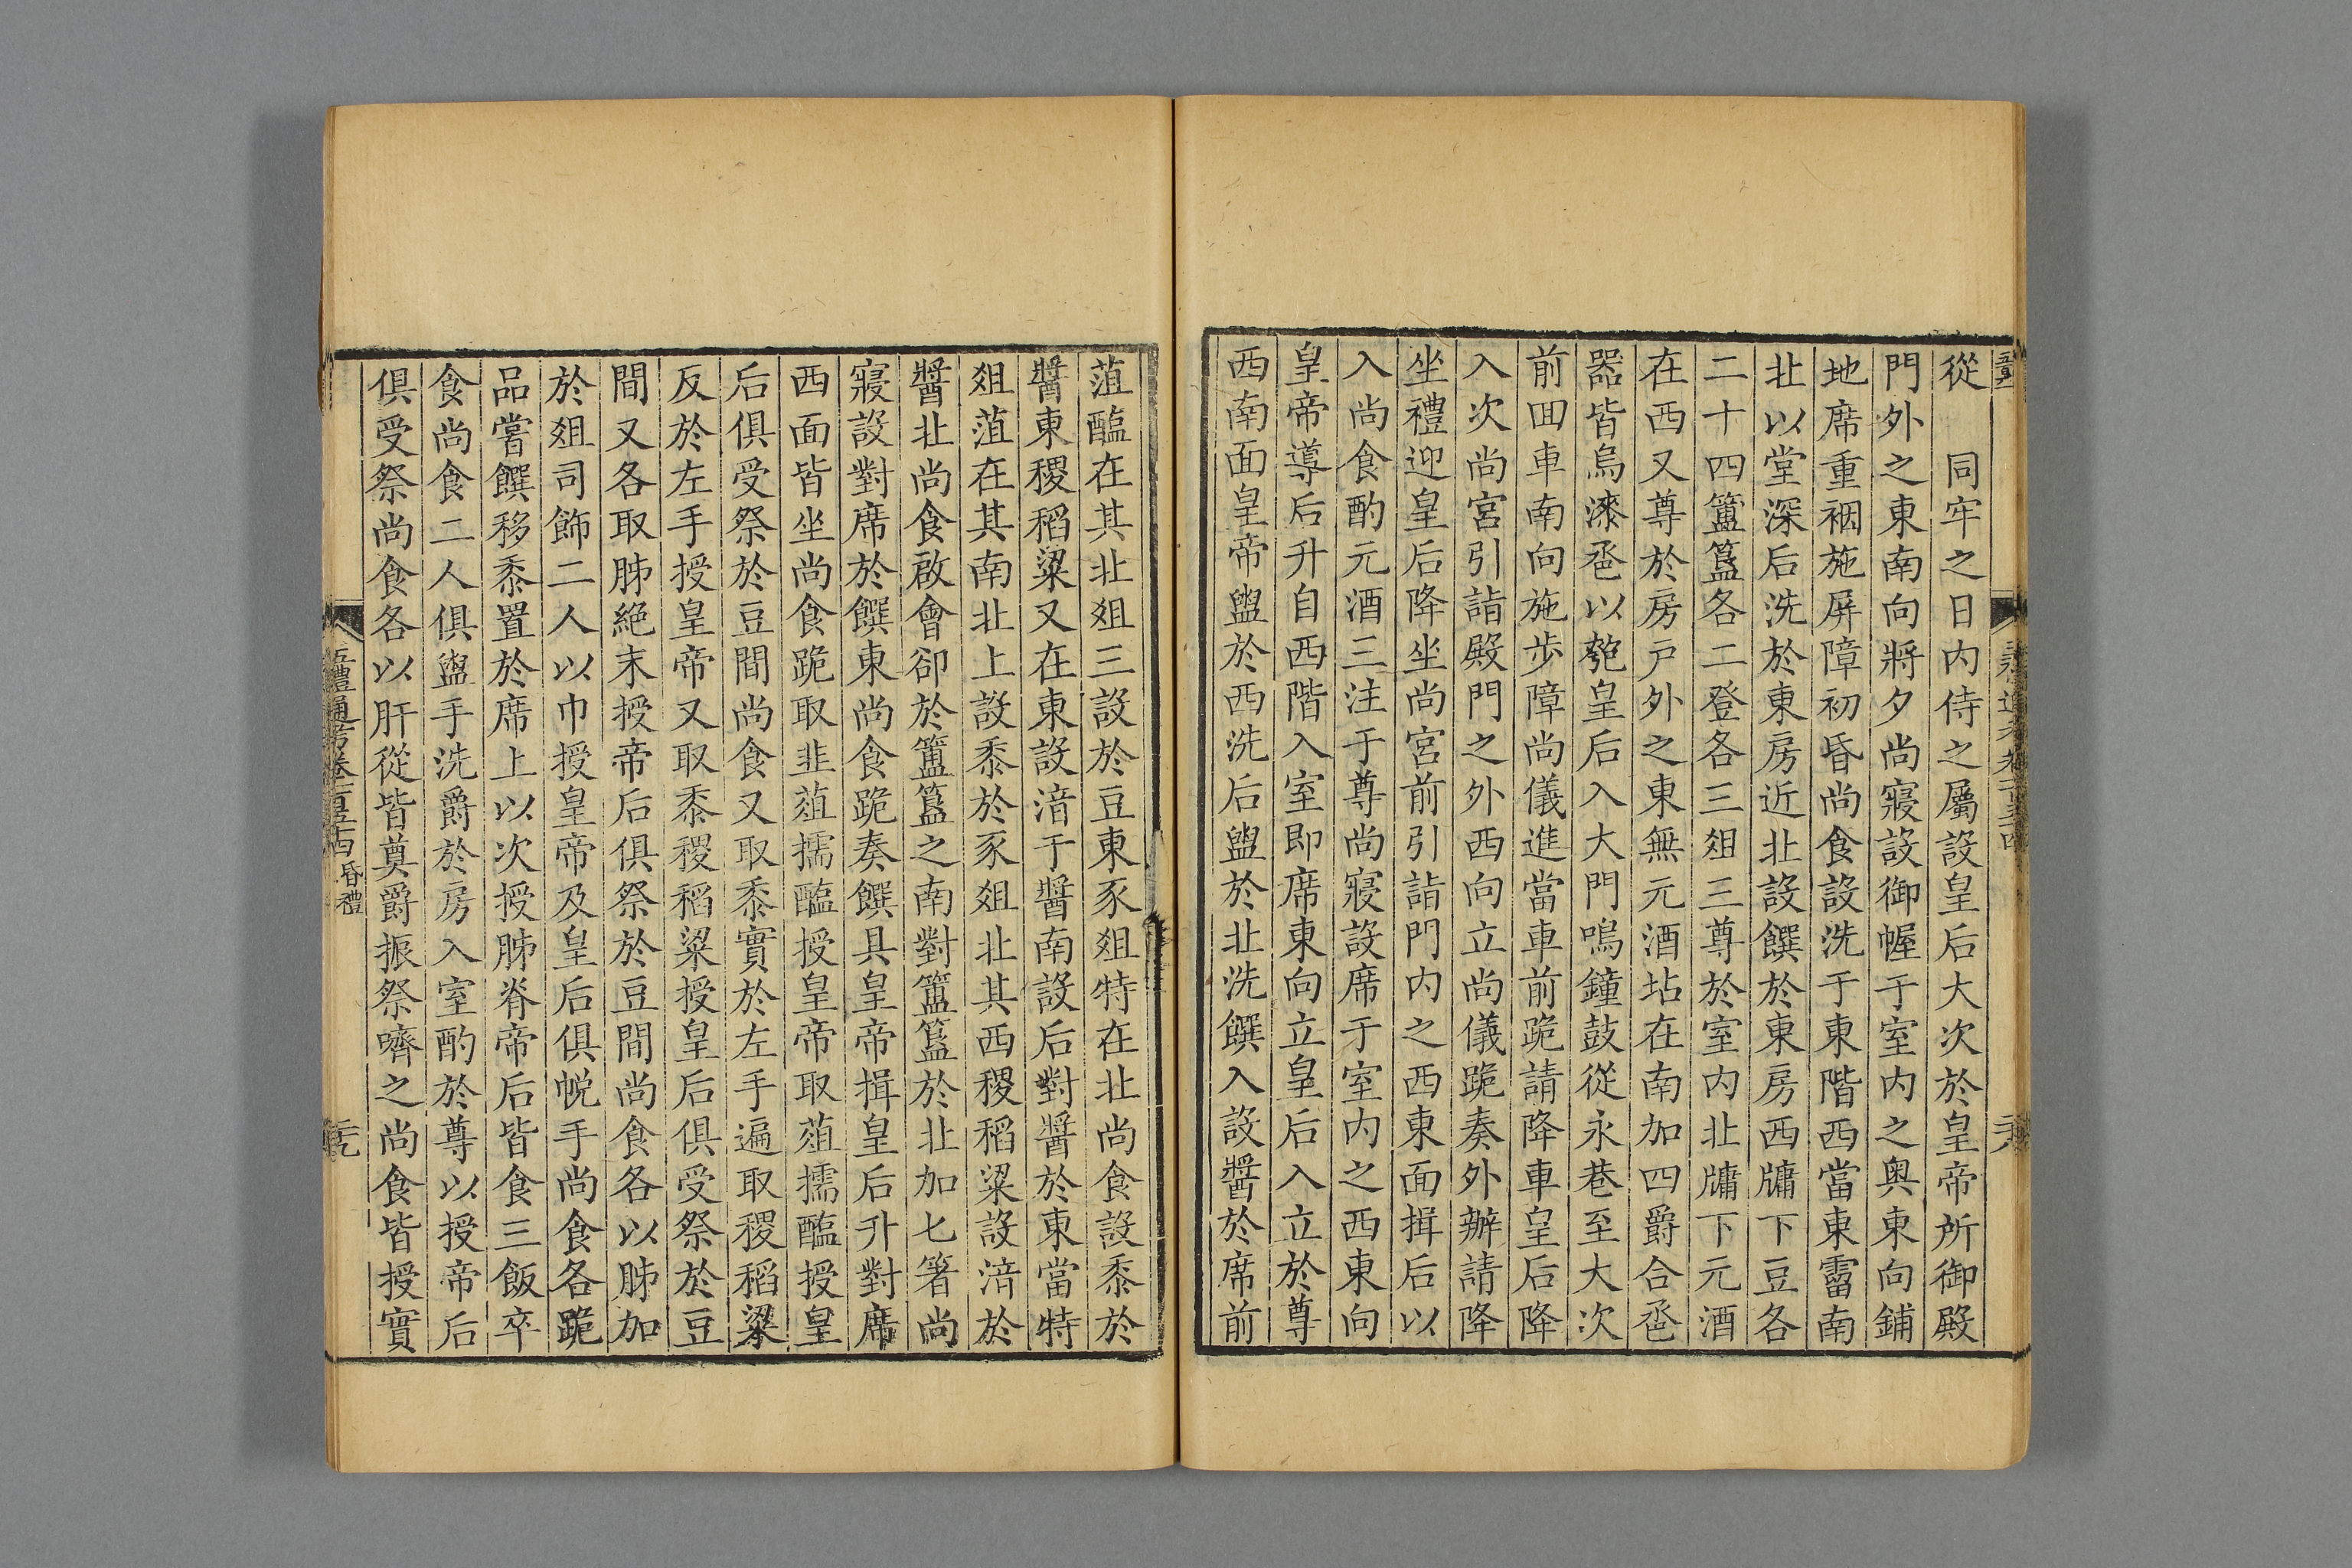 從　同牢之日内侍之屬設皇后大次於皇帝所御殿
門外之東南向將夕尚寢設御幄于室内之奥東向鋪
地席重裀施屏障初昏尚食設洗于東階西當東霤南
北以堂深后洗於東房近北設饌於東房西牖下豆各
二十四簠簋各二登各三俎三尊於室内北牖下元酒
在西又尊於房戸外之東無元酒坫在南加四爵合巹
器皆烏漆巹以匏皇后入大門鳴鐘鼓從永巷至大次
前回車南向施步障尚儀進當車前跪請降車皇后降
入次尚宮引詣殿門之外西向立尚儀跪奏外辦請降
坐禮迎皇后降坐尚宮前引詣門内之西東面揖后以
入尚食酌元酒三注于尊尚寢設席于室内之西東向
皇帝導后升自西階入室即席東向立皇后入立於尊
西南面皇帝盥於西洗后盥於北洗饌入設醬於席前
菹醢在其北俎三設於豆東豕俎特在北尚食設黍於
醬東稷稻粱又在東設湇于醬南設后對醬於東當特
俎菹在其南北上設黍於豕俎北其西稷稻粱設湇於
醬北尚食啟會卻於簠簋之南對簠簋於北加匕箸尚
寢設對席於饌東尚食跪奏饌具皇帝揖皇后升對席
西面皆坐尚食跪取韭菹擩醢授皇帝取菹擩醢授皇
后俱受祭於豆間尚食又取黍實於左手遍取稷稻粱
反於左手授皇帝又取黍稷稻粱授皇后俱受祭於豆
間又各取肺絶末授帝后俱祭於豆間尚食各以肺加
於俎司飾二人以巾授皇帝及皇后俱帨手尚食各跪
品嘗饌移黍置於席上以次授肺脊帝后皆食三飯卒
食尚食二人俱盥手洗爵於房入室酌於尊以授帝后
俱受祭尚食各以肝從皆奠爵振祭嚌之尚食皆授實
五禮通考卷一百五十四　昏禮